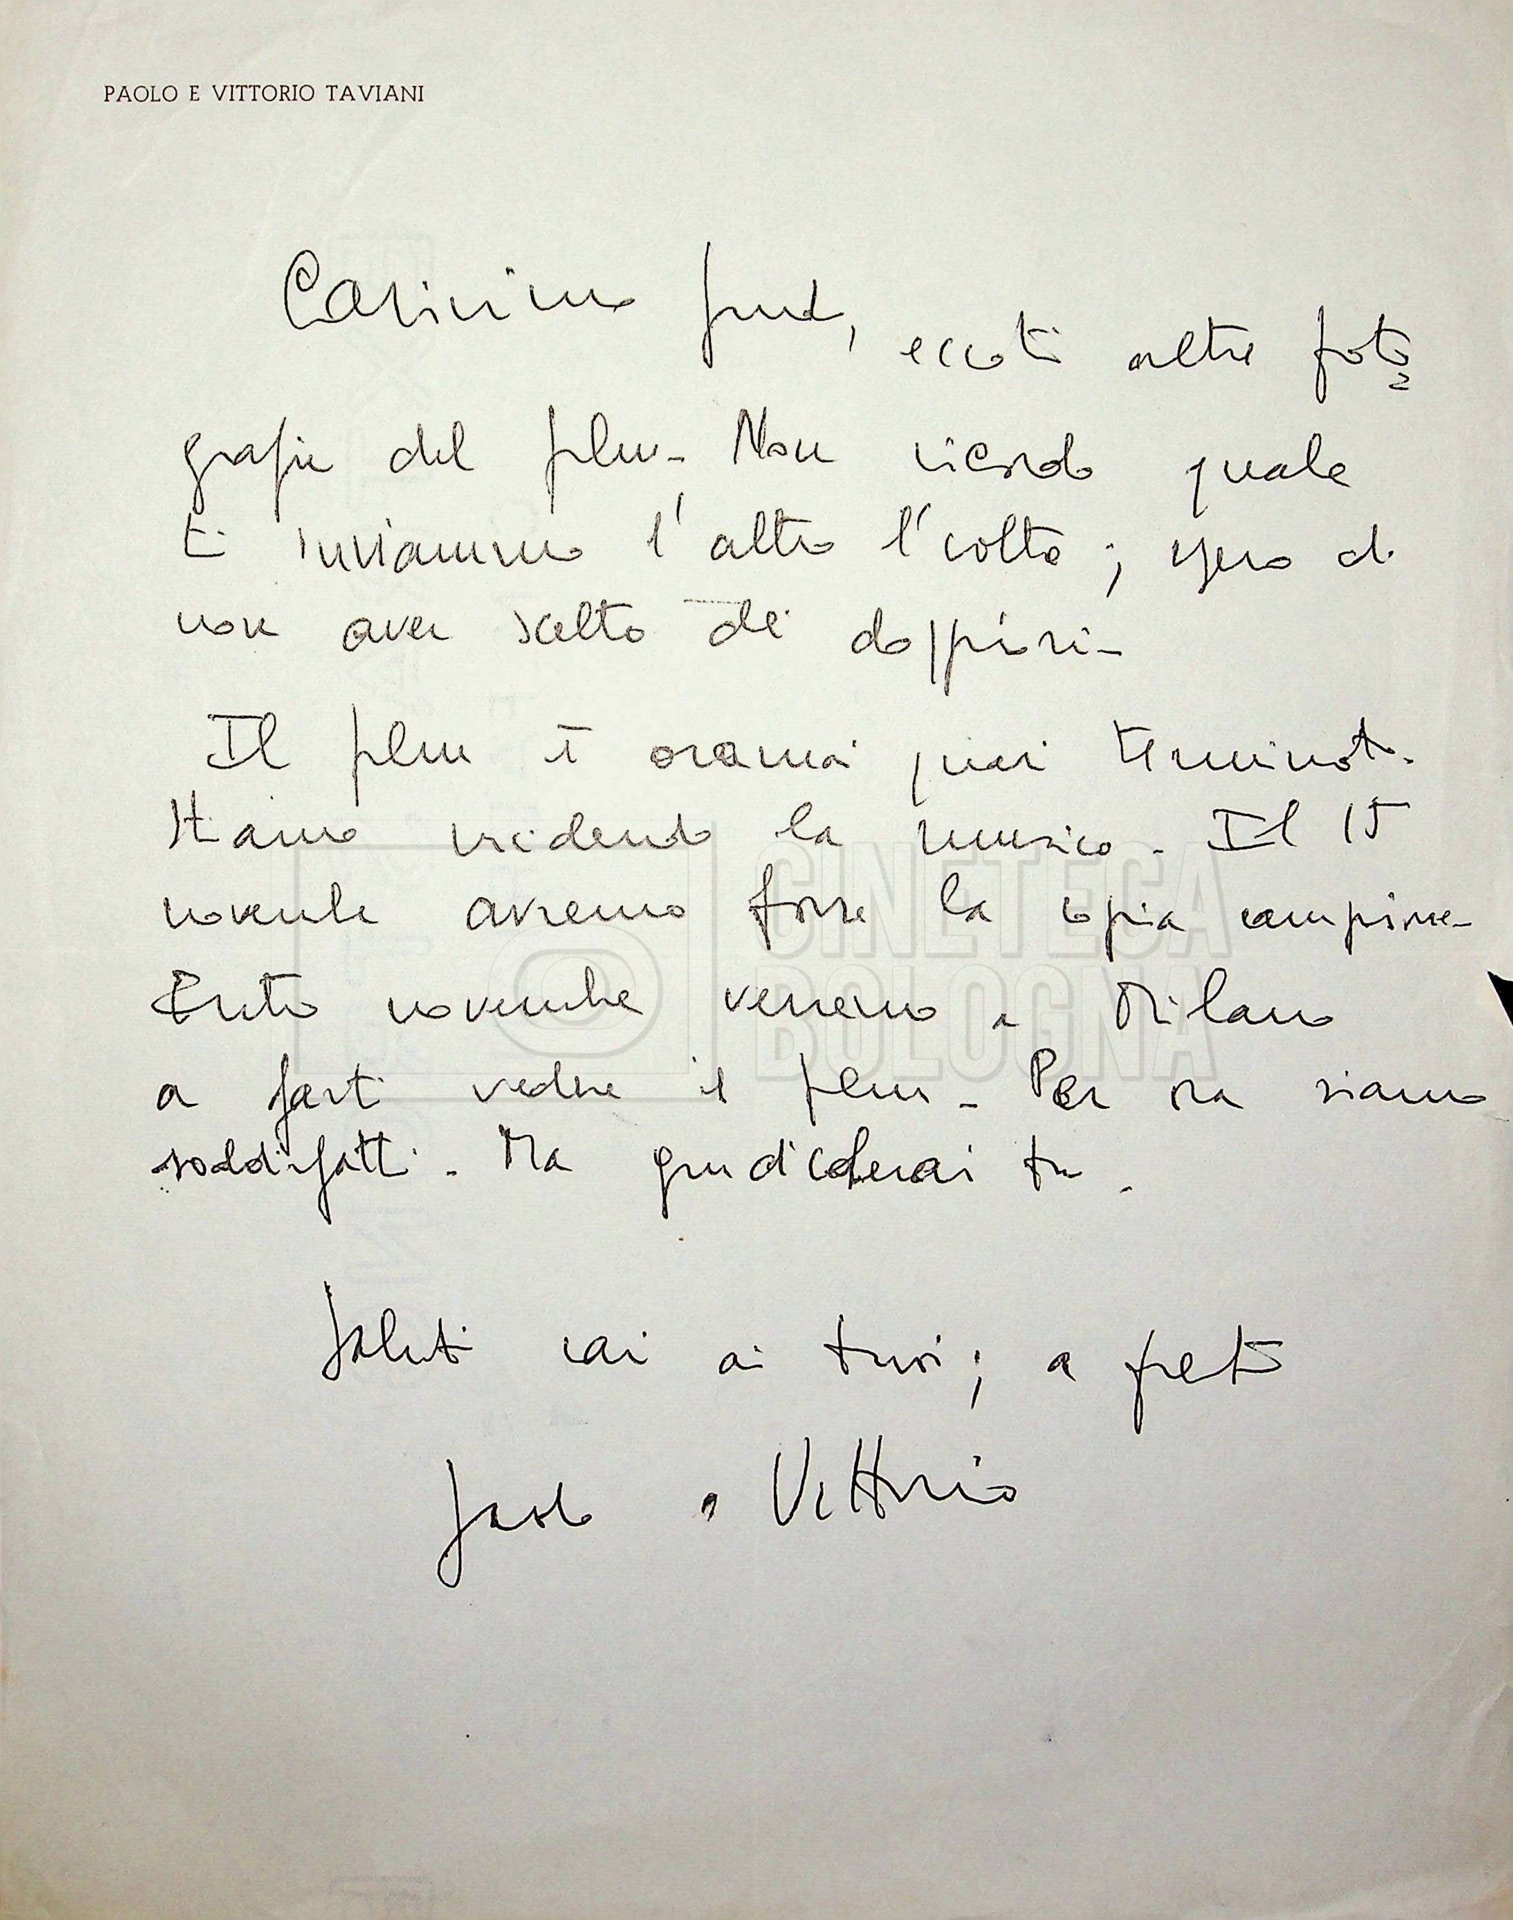 PAOLO E VITTORIO TAVIANI
Carissimo eccoti altre foto=
grafie del film. Non ricordo quale
ti inviammo l'altro l'volta; spero di
non aver scelto dei doppioni.
Il film è oramai quasi terminato.
Stiamo incidendo la musica. Il 15
novembre avremo forse la copia campione.
Entro novembre verremo a Milano
a farti vedere il film. Per ora siamo
soddisfatti. Ma giudicherai tu.
Saluti cari ai tuoi; a presto
Paolo e Vittorio
CINETECA
BOLOGNA